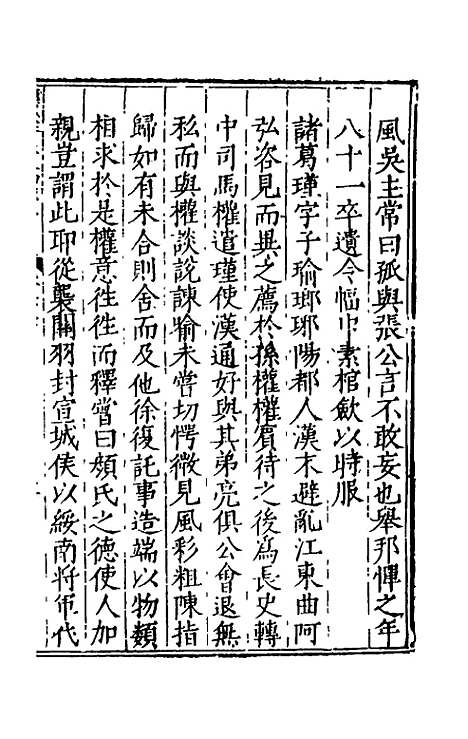 風吳主常曰孤與張公言不敢妄也舉邦憚之年
八十一卒遺令幅巾素棺歛以時服
諸葛瑾字子瑜瑯琊陽都人漢末避亂江東曲阿
弘咨見而異之薦於孫權權賔待之後爲長史轉
中司馬權遣瑾使漢通好與其弟亮俱公會退無
私而與權談說諫喻未嘗切愕微見風彩粗陳指
歸如有未合則舍而及他徐復託事造端以物類
相求於是權意徃徃而釋嘗曰顔氏之德使人加
親豈謂此耶從襲關羽封宣城侯以綏南將軍代